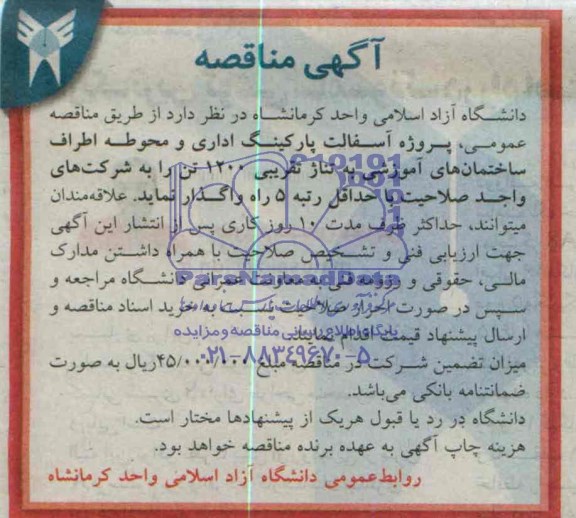 آگهی مناقصه
دانشگاه آزاد اسلامی واحد کرمانشاه در نظر دارد از طریق مناقصه
عمومی، پروژه آسفالت پارکینگ اداری و محوطه اطراف
ساختمان‌های آموزشی به تناژ تقریبی ۱۲۰۰ تن را به شرکت‌های
واجد صلاحیت با حداقل رتبه ۵ راه واگذار نماید. علاقه‌مندان
میتوانند، حداکثر ظرف مدت ۱۰ روز کاری پس از انتشار این آگهی
جهت ارزیابی فنی و تشخیص صلاحیت با همراه داشتن مدارک
مالی، حقوقی و رزومه فنی به معاونت عمرانی دانشگاه مراجعه و
سپس در صورت احراز صلاحیت نسبت به خرید اسناد مناقصه و
ارسال پیشنهاد قیمت اقدام نمایند.
میزان تضمین شرکت در مناقصه مبلغ ۴۵/۰۰۰/۰۰۰ریال به صورت
ضمانتنامه بانکی می‌باشد.
دانشگاه در رد یا قبول هریک از پیشنهادها مختار است.
هزینه چاپ آگهی به عهده برنده مناقصه خواهد بود.
روابط‌عمومی دانشگاه آزاد اسلامی واحد کرمانشاه
ParsNamadData
پایگاه اطلاع رسانی مناقصه و مزایده
۰۲۱-۸۸۳۴۹۶۷۰-۵